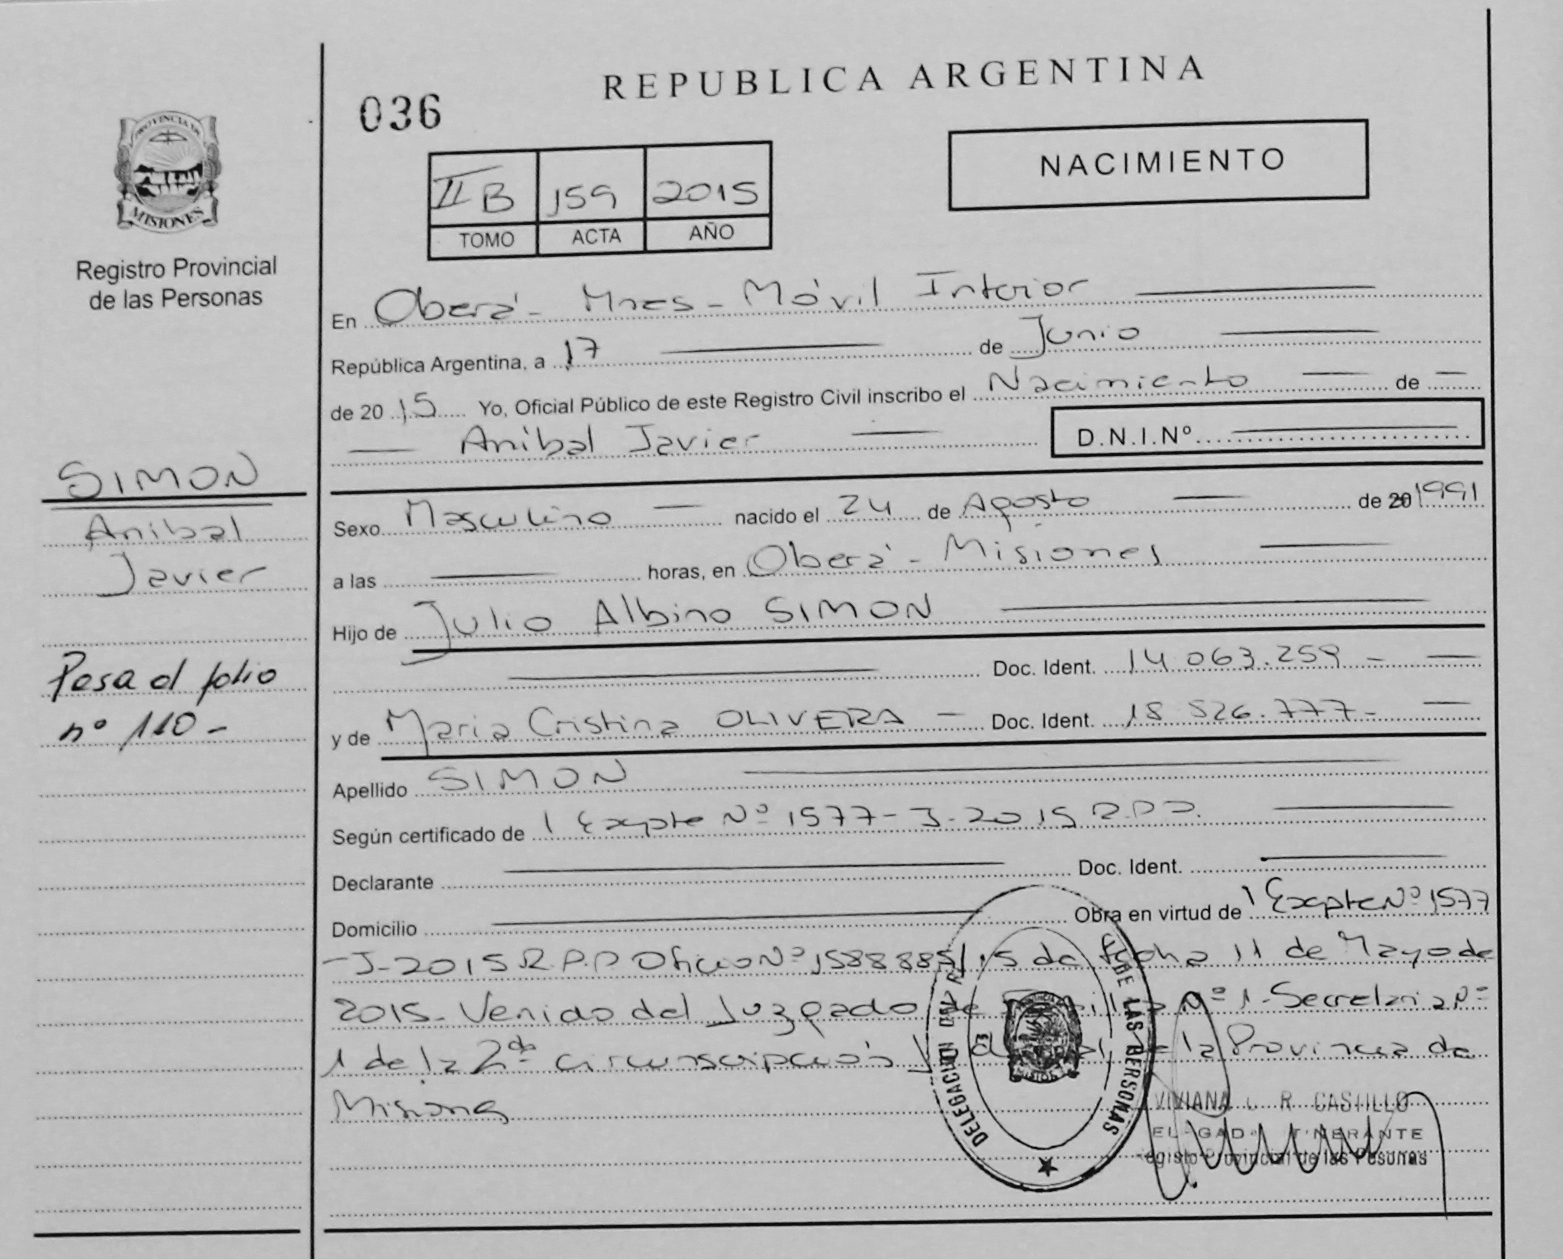 REPUBLICA ARGENTINA
036
NACIMIENTO
II B 159 2015
TOMO ACTA AÑO
PROVINCIA DE
MISIONES
Registro Provincial
de las Personas
En Oberá - Mnes - Móvil Interior
República Argentina, a 17 de Junio
de 20 15 Yo, Oficial Público de este Registro Civil inscribo el Nacimiento de
Aníbal Javier D.N.I.Nº
SIMON
Aníbal
Javier
Pasa al folio
nº 110 -
Sexo Masculino nacido el 24 de Agosto de 20 1991
a las horas, en Oberá - Misiones
Hijo de Julio Albino SIMON
Doc. Ident. 14.063.259 -
y de Maria Cristina OLIVERA - Doc. Ident. 18 526.777 -
Apellido SIMON
Según certificado de Expte Nº 1577 - J - 2015 R.P.P.
Declarante Doc. Ident.
Domicilio Obra en virtud de Expte Nº 1577
- J - 2015 R.P.P Oficio Nº 1588885/15 de fecha 11 de Mayo de
2015 - Venido del Juzgado de nº 1 - Secretaria nº
1 de la 2da circunscripción de la Provincia de
Misiones
DELEGACION DE LAS PERSONAS
VIVIANA R. CASTILLO
ITINERANTE
Provincial de las Personas